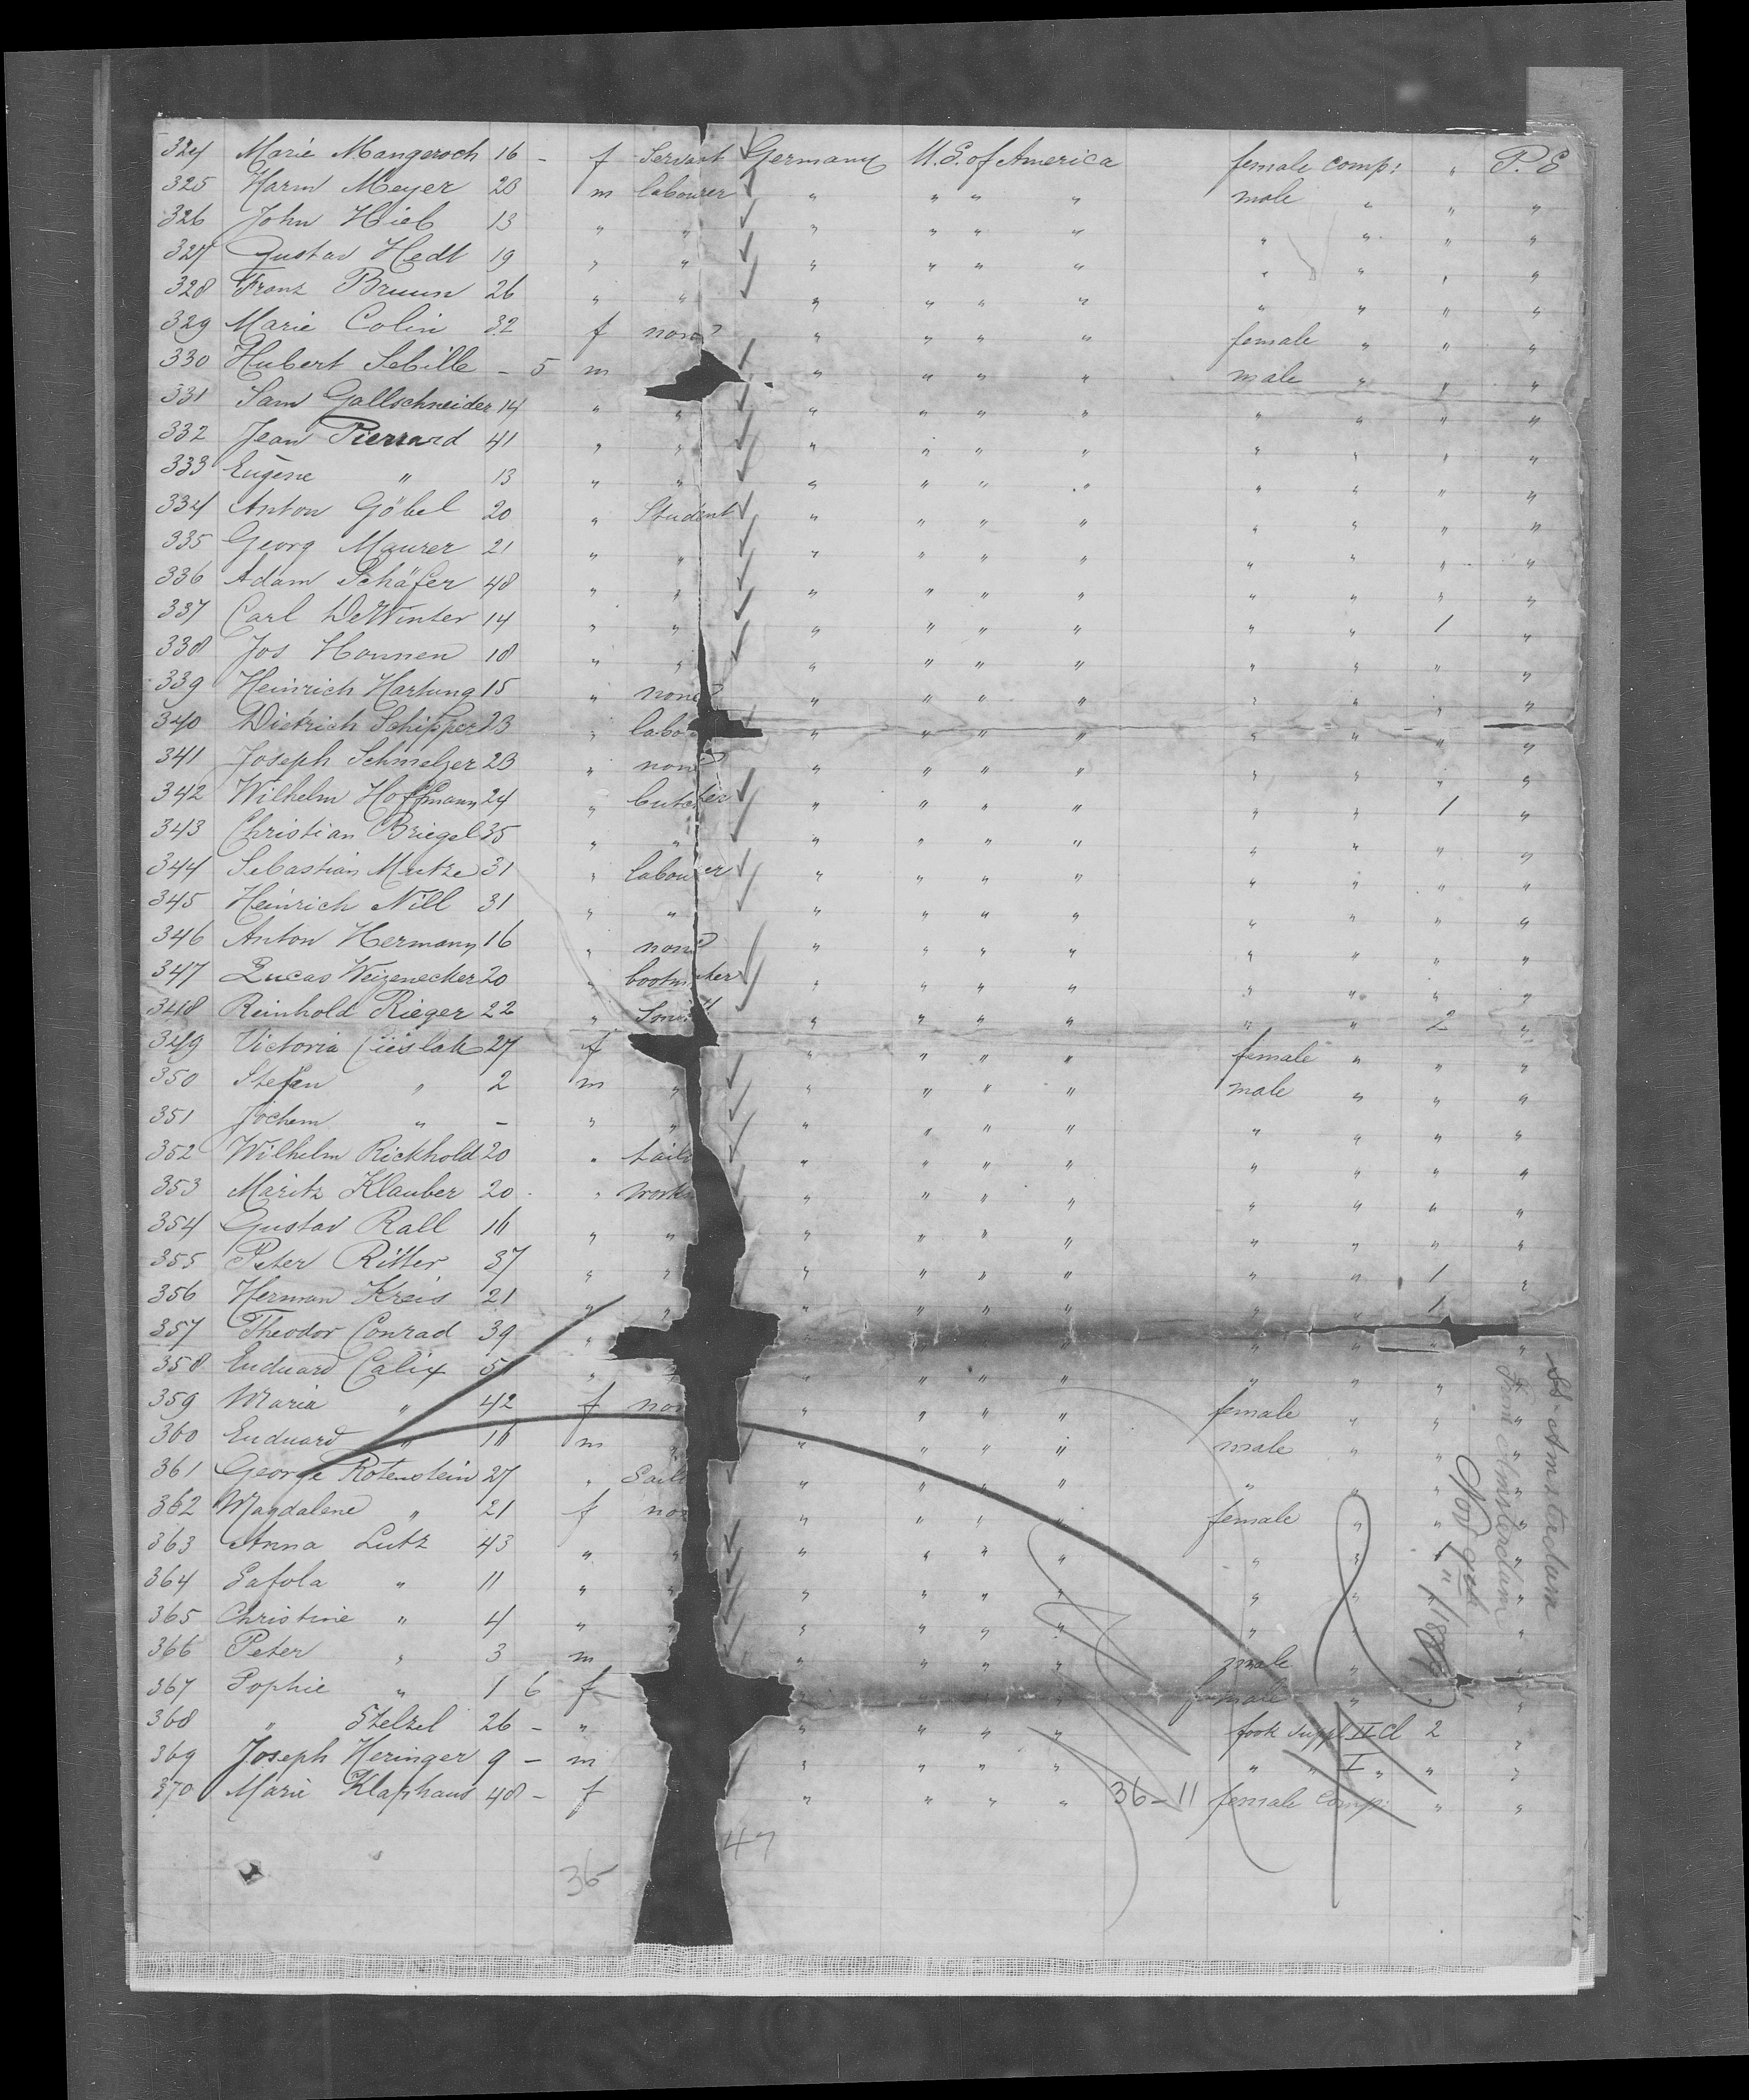 324 Marie Mangeroch 16 - f Servant Germany U.S. of America female comp: " P.E
325 Harm Meyer 28 m labourer " " " " male " " "
326 John Hieb 13 " " " " " " " " " "
327 Gustav Hedt 19 " " " " " " " " " "
328 Franz Bruun 26 " " " " " " " " " "
329 Marie Colin 32 f none " " " " female " " "
330 Hubert Sebille - 5 m " " " " male " " "
331 Sam Gallschneider 14 " " " " " " " " " "
332 Jean Pierrard 41 " " " " " " " " " "
333 Eugène " 13 " " " " " " " " " "
334 Anton Göbel 20 " Student " " " " " " " "
335 Georg Maurer 21 " " " " " " " " " "
336 Adam Schäfer 48 " " " " " " " " " "
337 Carl DeWinter 14 " " " " " " " " 1 "
338 Jos Hannen 18 " " " " " " " " " "
339 Heinrich Hartung 15 " none " " " " " " " "
340 Dietrich Schipper 23 " labo " " " " " " " "
341 Joseph Schmelzer 23 " none " " " " " " " "
342 Wilhelm Hoffmann 24 " butcher " " " " " " 1 "
343 Christian Briegel 35 " " " " " " " " " "
344 Sebastian Mutze 31 " labourer " " " " " " " "
345 Heinrich Nill 31 " " " " " " " " " "
346 Anton Hermann 16 " none " " " " " " " "
347 Lucas Weizenecker 20 " bootmaker " " " " " " " "
348 Reinhold Rieger 22 " Smith " " " " " " 2 "
349 Victoria Cieslak 27 f " " " " female " " "
350 Stefan " 2 m " " " " " male " " "
351 Jochem " - " " " " " " " " " "
352 Wilhelm Rickhold 20 " tail " " " " " " " "
353 Maritz Klauber 20 " work " " " " " " " "
354 Gustav Rall 16 " " " " " " " " " "
355 Peter Ritter 37 " " " " " " " " 1 "
356 Herman Kreis 21 " " " " " " " " 1
357 Theodor Conrad 39 " " " " " " "
358 Enduard Calix 5 " " " " " " " " "
359 Maria " 42 f non " " " " female " " "
360 Enduard " 16 m " " " " " male " " "
361 George Rotenstein 27 " Sail " " " " " " " "
362 Magdalene " 21 f non " " " " female " " "
363 Anna Lutz 43 " " " " " " " " " "
364 Safola " 11 " " " " " " " " " "
365 Christine " 4 " " " " " " " " "
366 Peter " 3 m " " " " male " "
367 Sophie " 1 6 f " " " female " " "
368 " Stelzel 26 - " " " " " took suppl II cl 2 "
369 Joseph Heringer 9 - m " " " " " " I " " "
370 Marie Klaphaus 48 - f " " " " 36-11 female comp: " "
47
36
SS Amsterdam
from Amsterdam
Nov 9th